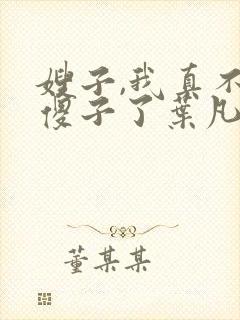 嫂子,我真不
傻子了葉凡
董某某